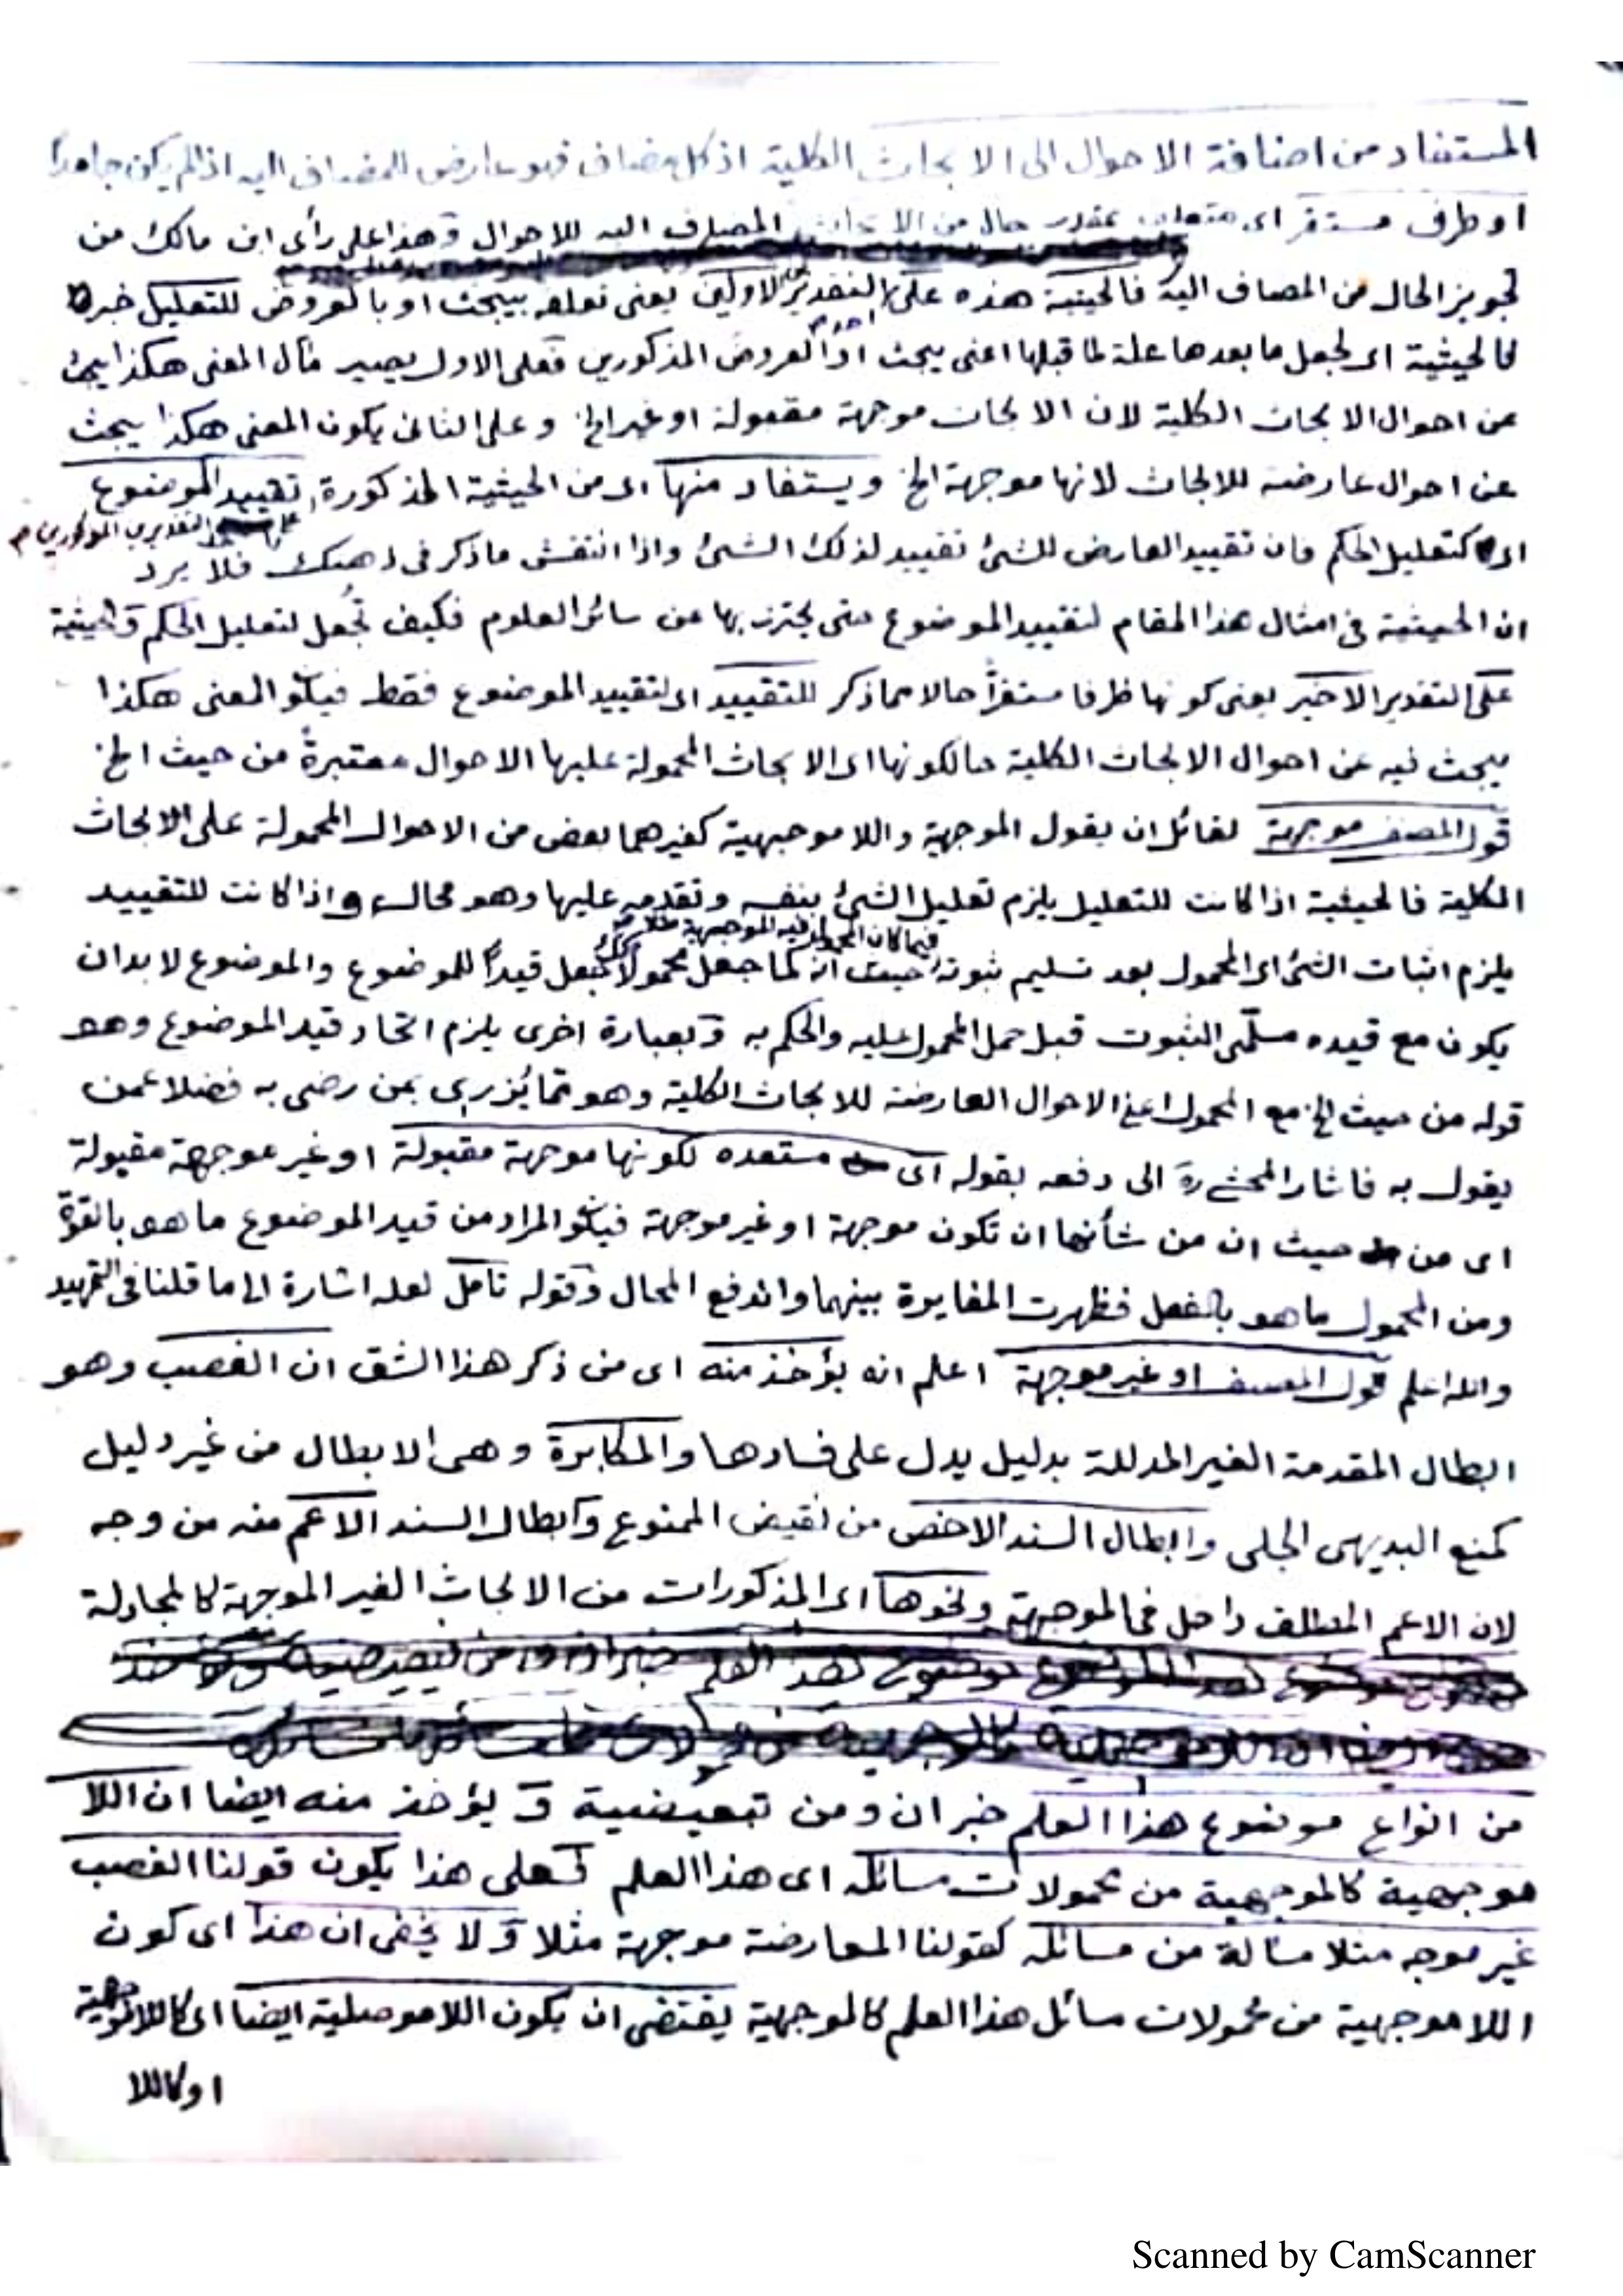 المستفاد من اضافة الاحوال الى الابحاث الكلية اذ كل مضاف فهو عارض للمضاف اليه اذا لم يكن جامدا
او ظرف مستقر اى متعلق بمقدر حال من الابحاث المضاف اليه للاحوال وهذا على رأى ابن مالك من
تجويز الحال من المضاف اليه فالحيثية هذه على التقديرين الاولين يعنى تعلقه بيبحث او بالعروض للتعليل خبر
فالحيثية اى لجعل ما بعدها علة لما قبلها اعنى يبحث او العروض المذكورين فعلى الاول يصير مآل المعنى هكذا يبحث
عن احوال الابحاث الكلية لان الابحاث موجهة مقبولة او غير الخ وعلى الثانى يكون المعنى هكذا يبحث
عن احوال عارضة للابحاث لانها موجهة الخ ويستفاد منها اى من الحيثية المذكورة تقييد الموضوع
على التقديرين المذكورين م
اى كتعليل الحكم فان تقييد العارض للشئ تقييد لذلك الشئ واذا انتقش ما ذكر فى ذهنك فلا يرد
ان الحيثية فى امثال هذا المقام لتقييد الموضوع حتى يحترز بها عن سائر العلوم فكيف تجعل لتعليل الحكم والحيثية
على التقدير الاخير يعنى كونها ظرفا مستقرا حالا مما ذكر للتقييد اى لتقييد الموضوع فقط فيكون المعنى هكذا
يبحث فيه عن احوال الابحاث الكلية حالكونها اى الابحاث المحمولة عليها الاحوال معتبرة من حيث الخ
قول المصنف موجهة لقائل ان يقول الموجهية واللاموجهية كغيرهما بعض من الاحوال المحمولة على الابحاث
الكلية فالحيثية اذا كانت للتعليل يلزم تعليل الشئ بنفسه وتقدمه عليها وهو محال واذا كانت للتقييد
فيما كان المحمول فيه الموجهية
يلزم اثبات الشئ اى المحمول بعد تسليم ثبوته حيث انه كما جعل محمولا كذلك جعل قيدا للموضوع والموضوع لا بد ان
يكون مع قيده مسلمى الثبوت قبل حمل المحمول عليه والحكم به وبعبارة اخرى يلزم اتحاد قيد الموضوع وهو
قوله من حيث الخ مع المحمول اعنى الاحوال العارضة للابحاث الكلية وهو مما يزرى بمن رضى به فضلا عمن
يقول به فاشار المحشى ره الى دفعه بقوله اى مستعدة لكونها موجهة مقبولة او غير موجهة مقبولة
اى من حيث ان من شأنها ان تكون موجهة او غير موجهة فيكون المراد من قيد الموضوع ما هو بالقوة
ومن المحمول ما هو بالفعل فظهرت المغايرة بينهما واندفع المحال وقوله تأمل لعله اشارة الى ما قلنا فى التمهيد
والله اعلم قول المصنف او غير موجهة اعلم انه يؤخذ منه اى من ذكر هذا الشق ان الغصب وهو
ابطال المقدمة الغير المدللة بدليل يدل على فسادها والمكابرة وهى الابطال من غير دليل
كمنع البديهى الجلى وابطال السند الاخص من نقيض الممنوع وابطال السند الاعم منه من وجه
لان الاعم المطلق داخل فى الموجهة ونحوها اى المذكورات من الابحاث الغير الموجهة كالمجادلة
من انواع موضوع هذا العلم خبر ان ومن تبعيضية و يؤخذ منه ايضا ان اللا
موجهية كالموجهية من محمولات مسائله اى هذا العلم فعلى هذا يكون قولنا الغصب
غير موجه مثلا مسألة من مسائله كقولنا المعارضة موجهة مثلا ولا يخفى ان هذا اى كون
اللاموجهية من محمولات مسائل هذا العلم كالموجهية يقتضى ان يكون اللاموصلية ايضا اى كاللاموجهية
او كاللا
Scanned by CamScanner